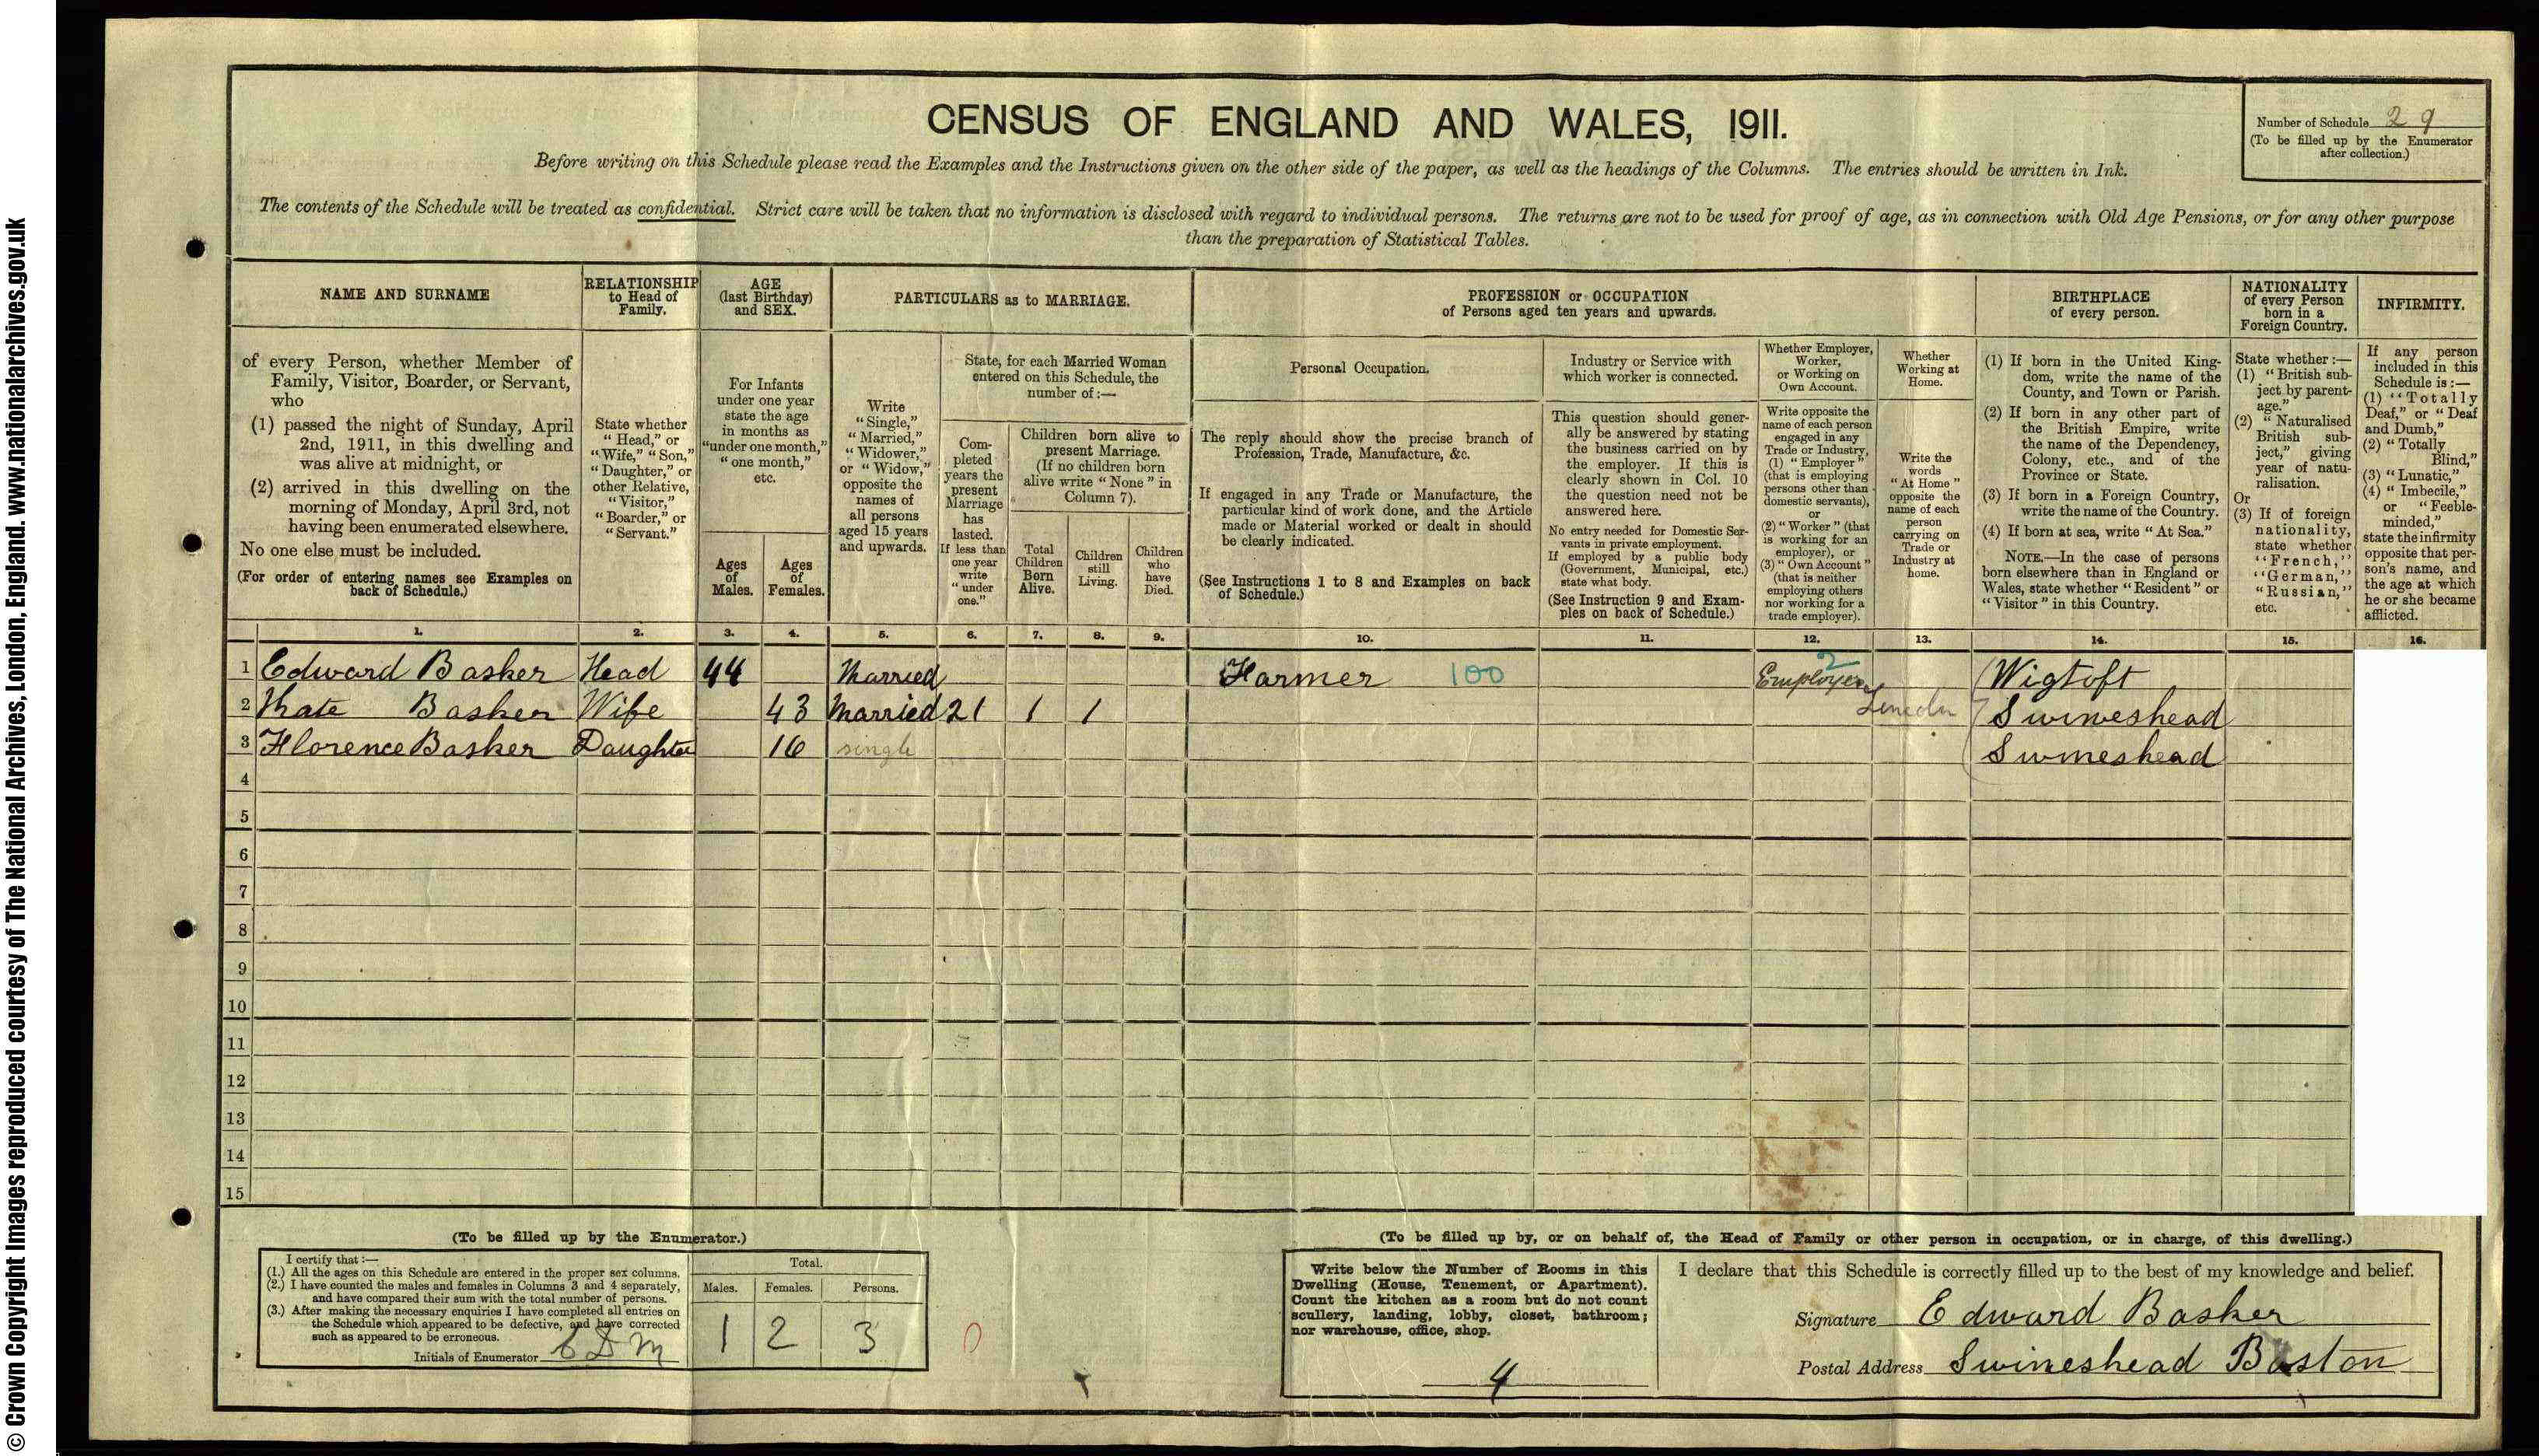 © Crown Copyright Images reproduced courtesy of The National Archives, London, England. www.nationalarchives.gov.uk
CENSUS OF ENGLAND AND WALES, 1911.
Number of Schedule 29
(To be filled up by the Enumerator
after collection.)
Before writing on this Schedule please read the Examples and the Instructions given on the other side of the paper, as well as the headings of the Columns. The entries should be written in Ink.
The contents of the Schedule will be treated as confidential. Strict care will be taken that no information is disclosed with regard to individual persons. The returns are not to be used for proof of age, as in connection with Old Age Pensions, or for any other purpose
than the preparation of Statistical Tables.
NAME AND SURNAME
of every Person, whether Member of
Family, Visitor, Boarder, or Servant,
who
(1) passed the night of Sunday, April
2nd, 1911, in this dwelling and
was alive at midnight, or
(2) arrived in this dwelling on the
morning of Monday, April 3rd, not
having been enumerated elsewhere.
No one else must be included.
(For order of entering names see Examples on
back of Schedule.)
RELATIONSHIP
to Head of
Family.
State whether
"Head," or
"Wife," "Son,"
"Daughter," or
other Relative,
"Visitor,"
"Boarder," or
"Servant."
AGE
(last Birthday)
and SEX.
For Infants
under one year
state the age
in months as
"under one month,"
"one month,"
etc.
Ages
of
Males.
Ages
of
Females.
PARTICULARS as to MARRIAGE.
Write
"Single,"
"Married,"
"Widower,"
or "Widow,"
opposite the
names of
all persons
aged 15 years
and upwards.
State, for each Married Woman
entered on this Schedule, the
number of :—
Com-
pleted
years the
present
Marriage
has
lasted.
If less than
one year
write
"under
one."
Children born alive to
present Marriage.
(If no children born
alive write "None" in
Column 7).
Total
Children
Born
Alive.
Children
still
Living.
Children
who
have
Died.
PROFESSION or OCCUPATION
of Persons aged ten years and upwards.
Personal Occupation.
The reply should show the precise branch of
Profession, Trade, Manufacture, &c.
If engaged in any Trade or Manufacture, the
particular kind of work done, and the Article
made or Material worked or dealt in should
be clearly indicated.
(See Instructions 1 to 8 and Examples on back
of Schedule.)
Industry or Service with
which worker is connected.
This question should gener-
ally be answered by stating
the business carried on by
the employer. If this is
clearly shown in Col. 10
the question need not be
answered here.
No entry needed for Domestic Ser-
vants in private employment.
If employed by a public body
(Government, Municipal, etc.)
state what body.
(See Instruction 9 and Exam-
ples on back of Schedule.)
Whether Employer,
Worker,
or Working on
Own Account.
Write opposite the
name of each person
engaged in any
Trade or Industry,
(1) "Employer"
(that is employing
persons other than
domestic servants),
or
(2) "Worker" (that
is working for an
employer), or
(3) "Own Account"
(that is neither
employing others
nor working for a
trade employer).
Whether
Working at
Home.
Write the
words
"At Home"
opposite the
name of each
person
carrying on
Trade or
Industry at
home.
BIRTHPLACE
of every person.
(1) If born in the United King-
dom, write the name of the
County, and Town or Parish.
(2) If born in any other part of
the British Empire, write
the name of the Dependency,
Colony, etc., and of the
Province or State.
(3) If born in a Foreign Country,
write the name of the Country.
(4) If born at sea, write "At Sea."
NOTE.—In the case of persons
born elsewhere than in England or
Wales, state whether "Resident" or
"Visitor" in this Country.
NATIONALITY
of every Person
born in a
Foreign Country.
State whether :—
(1) "British sub-
ject by parent-
age."
(2) "Naturalised
British sub-
ject," giving
year of natu-
ralisation.
Or
(3) If of foreign
nationality,
state whether
"French,"
"German,"
"Russian,"
etc.
INFIRMITY.
If any person
included in this
Schedule is :—
(1) "Totally
Deaf," or "Deaf
and Dumb,"
(2) "Totally
Blind,"
(3) "Lunatic,"
(4) "Imbecile,"
or "Feeble-
minded,"
state the infirmity
opposite that per-
son's name, and
the age at which
he or she became
afflicted.
1. 2. 3. 4. 5. 6. 7. 8. 9. 10. 11. 12. 13. 14. 15. 16.
1 Edward Basker Head 44 Married Farmer 100 Employer 2 Wigtoft
2 Kate Basker Wife 43 Married 21 1 1 Lincoln Swineshead
3 Florence Basker Daughter 16 single Swineshead
4
5
6
7
8
9
10
11
12
13
14
15
(To be filled up by the Enumerator.)
I certify that :—
(1.) All the ages on this Schedule are entered in the proper sex columns.
(2.) I have counted the males and females in Columns 3 and 4 separately,
and have compared their sum with the total number of persons.
(3.) After making the necessary enquiries I have completed all entries on
the Schedule which appeared to be defective, and have corrected
such as appeared to be erroneous.
Initials of Enumerator
Total.
Males. Females. Persons.
1 2 3
0
(To be filled up by, or on behalf of, the Head of Family or other person in occupation, or in charge, of this dwelling.)
Write below the Number of Rooms in this
Dwelling (House, Tenement, or Apartment).
Count the kitchen as a room but do not count
scullery, landing, lobby, closet, bathroom;
nor warehouse, office, shop.
4
I declare that this Schedule is correctly filled up to the best of my knowledge and belief.
Signature Edward Basker
Postal Address Swineshead Boston